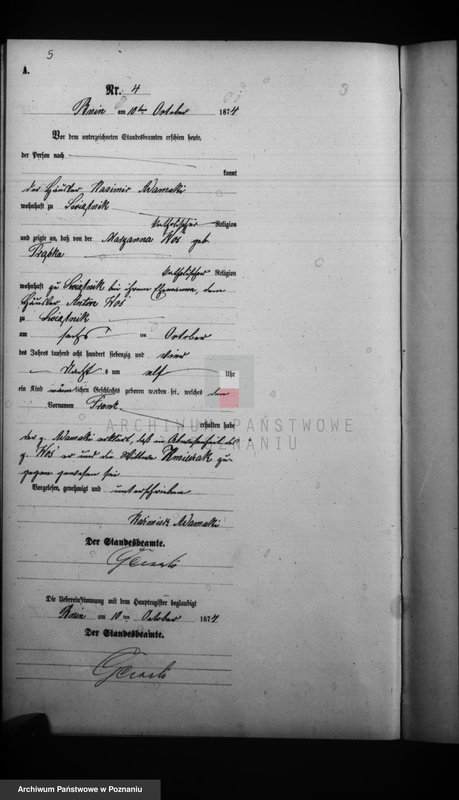 5
A.
Nr. 4
Bnin am 10ten October 1874
Vor dem unterzeichneten Standesbeamten erschien heute,
der Person nach
kannt
der Häusler Kasimir Adamski
wohnhaft zu
katholischer Religion
und zeigte an, daß von der Maryanna Kos geb.
katholischer Religion
wohnhaft zu bei ihrem Ehemann, dem
Häusler Anton Kos
zu
am sechs ten October
des Jahrs tausend acht hundert siebenzig und vier
Nachts um elf Uhr
ein Kind männlichen Geschlechts geboren worden sei, welches den
Vornamen Frank
erhalten habe
der g. Adamski erklärt, daß in Abwesenheit des
g. Kos er und die Wittwe zu-
gegen gewesen sei
Vorgelesen, genehmigt und unterschrieben
Adamski
Der Standesbeamte.
Die Uebereinstimmung mit dem Hauptregister beglaubigt
Bnin am 10 ten October 1874
Der Standesbeamte.
ARCHIWUM PAŃSTWOWE
W POZNANIU
Archiwum Państwowe w Poznaniu